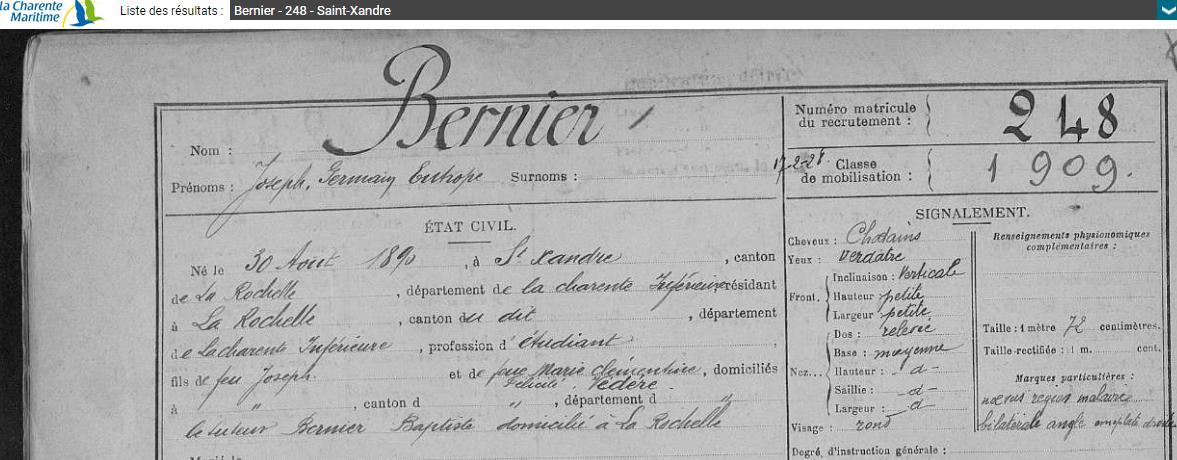 la Charente
Maritime
Liste des résultats :
Bernier - 248 - Saint-Xandre
Nom : Bernier
Prénoms : Joseph, Germain Eutrope Surnoms :
Numéro matricule
du recrutement : 248
17-2-28. Classe
de mobilisation : 1909.
ÉTAT CIVIL.
Né le 30 Août 1890, à St Xandre, canton
de La Rochelle, département de la charente Inférieure, résidant
à La Rochelle, canton du dit, département
de La charente Inférieure, profession d'étudiant
fils de feu Joseph. et de feue Marie Clémentine, domiciliés
Félicité. Védère.
à " , canton d " , département d "
le tuteur Bernier Baptiste domicilié à La Rochelle
SIGNALEMENT.
Cheveux : Chatains
Yeux : verdatre
Front. Inclinaison : Verticale
Hauteur : petite
Largeur : petite
Nez... Dos : relevé
Base : moyenne
Hauteur : -d-
Saillie : -d-
Largeur : -d
Visage : rond
Renseignements physionomiques
complémentaires :
Taille : 1 mètre 72 centimètres.
Taille rectifiée : 1 m. cent.
Marques particulières :
noevus région malaire
bilatérale angle omoplate droite
Degré d'instruction générale :